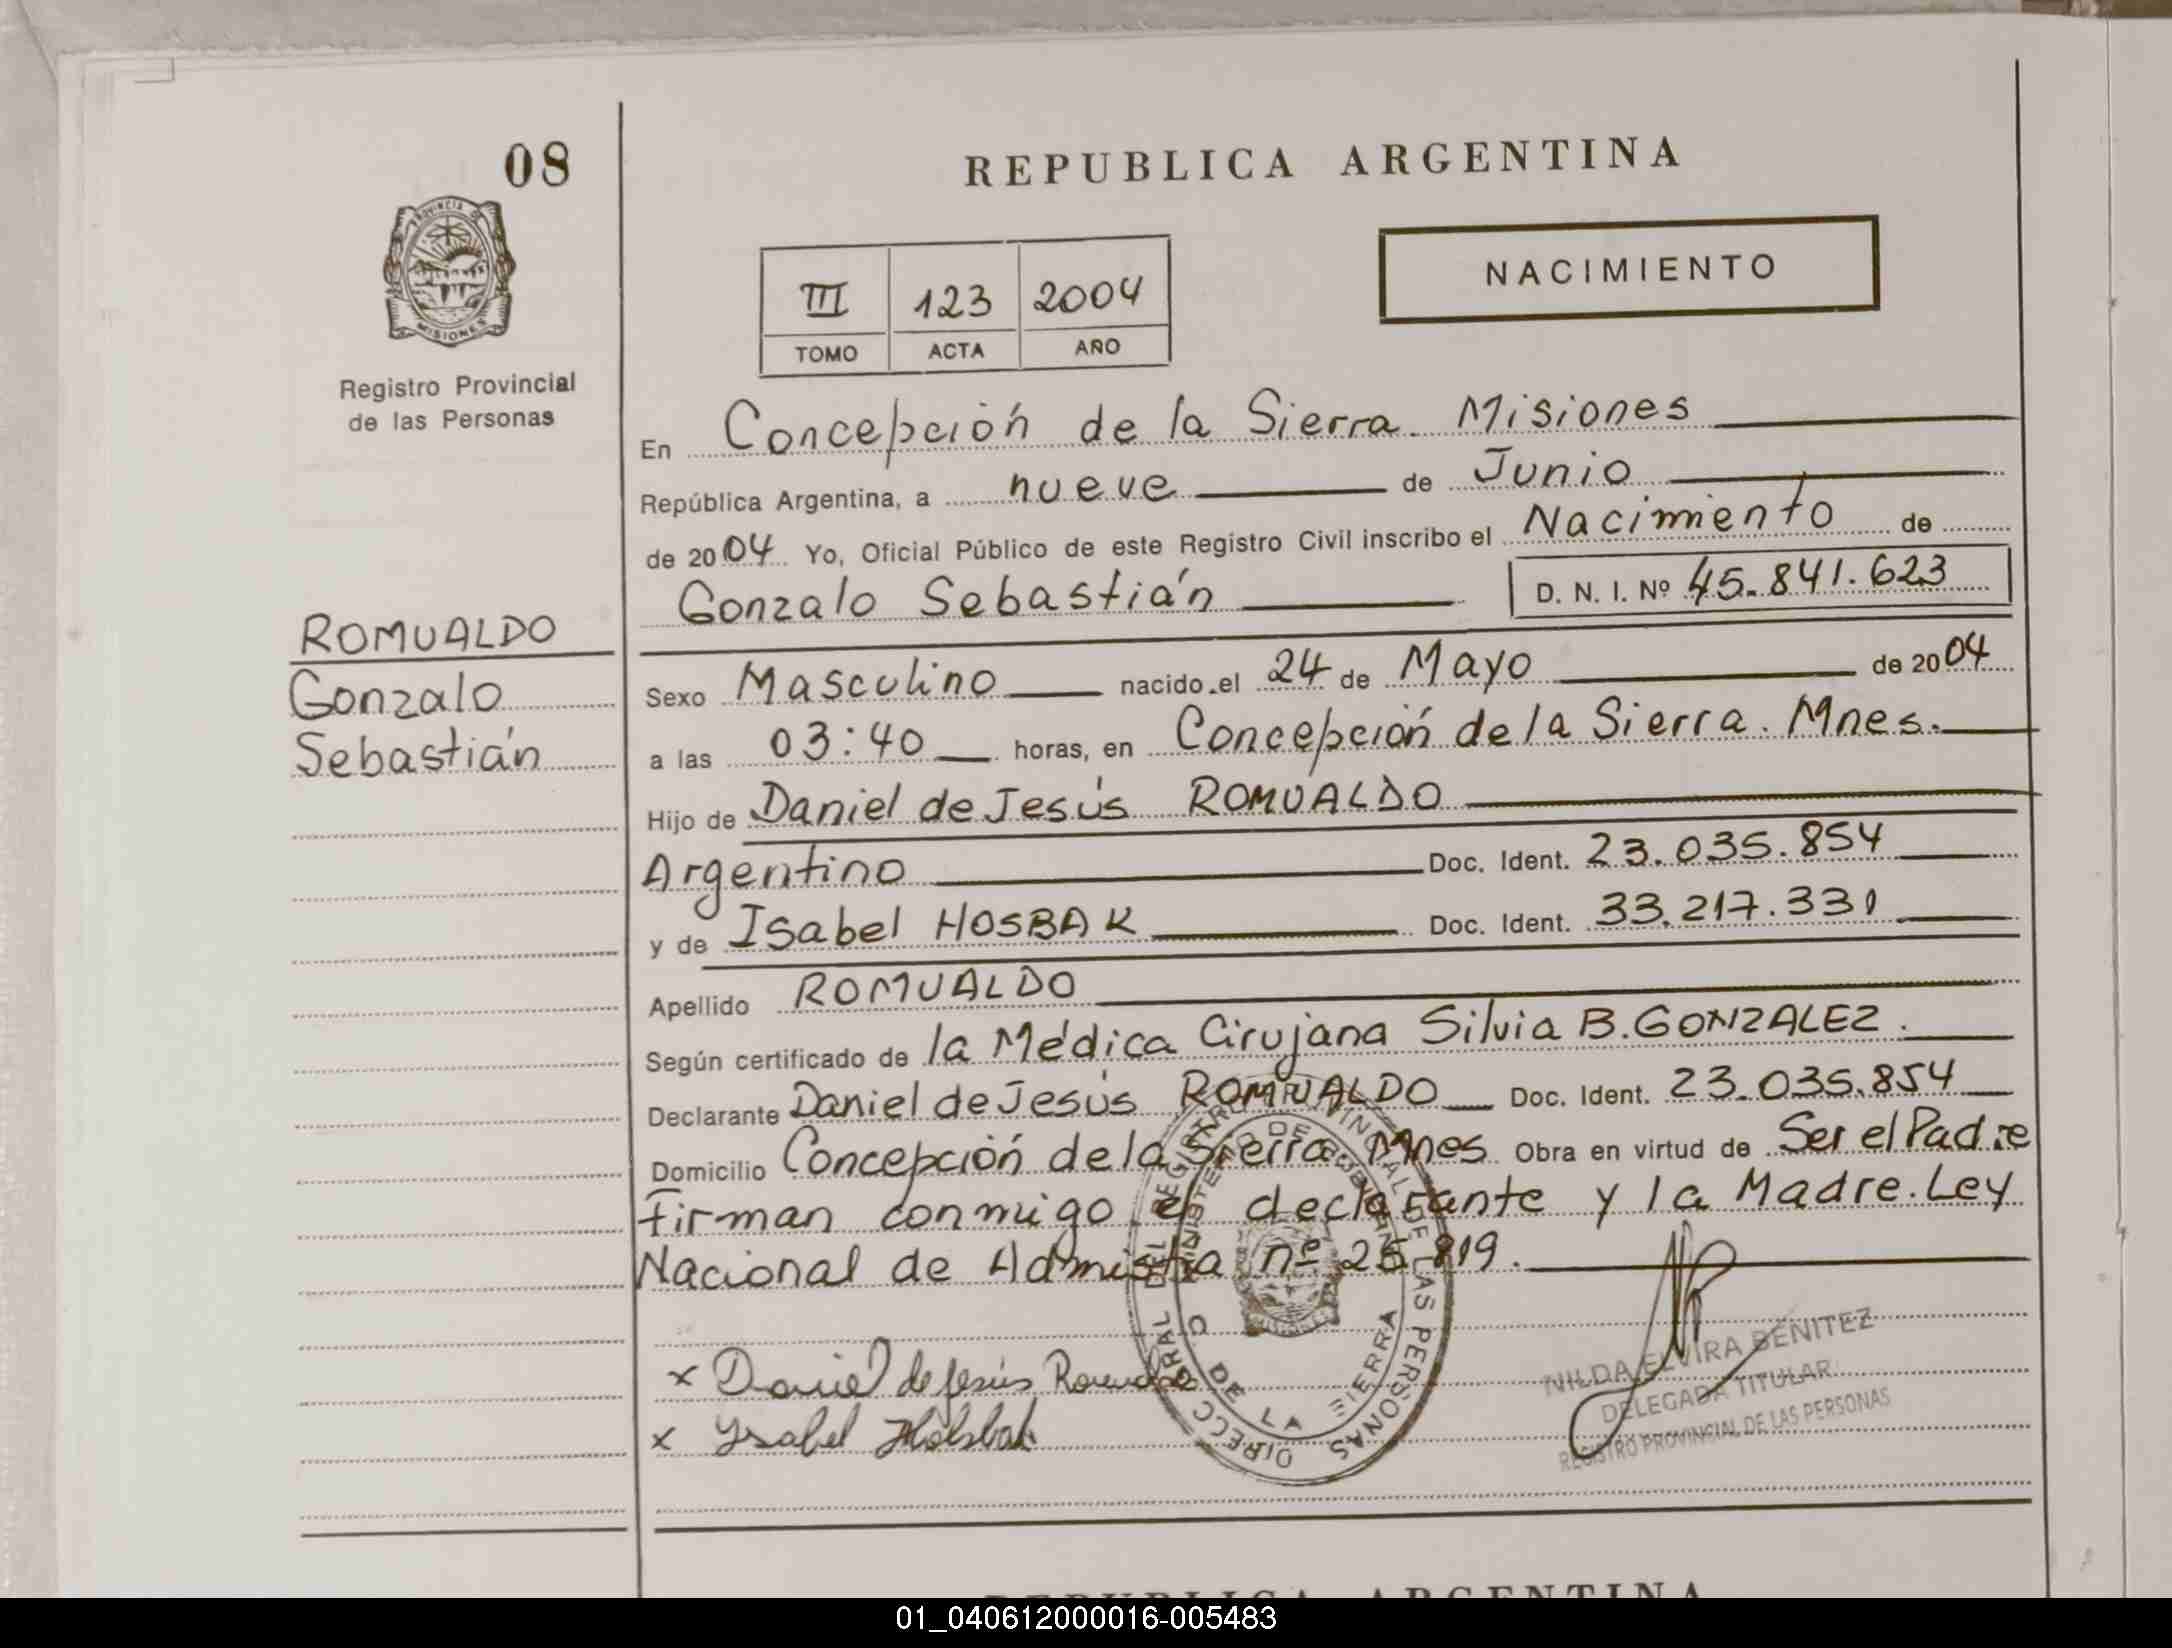 08
PROVINCIA DE
MISIONES
Registro Provincial
de las Personas
ROMUALDO
Gonzalo
Sebastián
REPUBLICA ARGENTINA
III 123 2004
TOMO ACTA AÑO
NACIMIENTO
En Concepción de la Sierra. Misiones
República Argentina, a nueve de Junio
de 2004 Yo, Oficial Público de este Registro Civil inscribo el Nacimiento de
Gonzalo Sebastián D. N. I. Nº 45.841.623
Sexo Masculino nacido el 24 de Mayo de 2004
a las 03:40 horas, en Concepción de la Sierra. Mnes.
Hijo de Daniel de Jesús ROMUALDO
Argentino Doc. Ident. 23.035.854
y de Isabel HOSBAK Doc. Ident. 33.217.331
Apellido ROMUALDO
Según certificado de la Médica Cirujana Silvia B. GONZALEZ.
Declarante Daniel de Jesús ROMUALDO Doc. Ident. 23.035.854
Domicilio Concepción de la Sierra. Mnes Obra en virtud de Ser el Padre
Firman conmigo el declarante y la Madre. Ley
Nacional de Admistia nº 25.819.
DIRECC. GRAL DEL REGISTRO PROVINCIAL DE LAS PERSONAS
MINISTERIO DE GOBIERNO
C. DE LA SIERRA
x Daniel de Jesús Romualdo
x Ysabel Holsbak
NILDA ELVIRA BENITEZ
DELEGADA TITULAR
REGISTRO PROVINCIAL DE LAS PERSONAS
REPUBLICA ARGENTINA
01_040612000016-005483